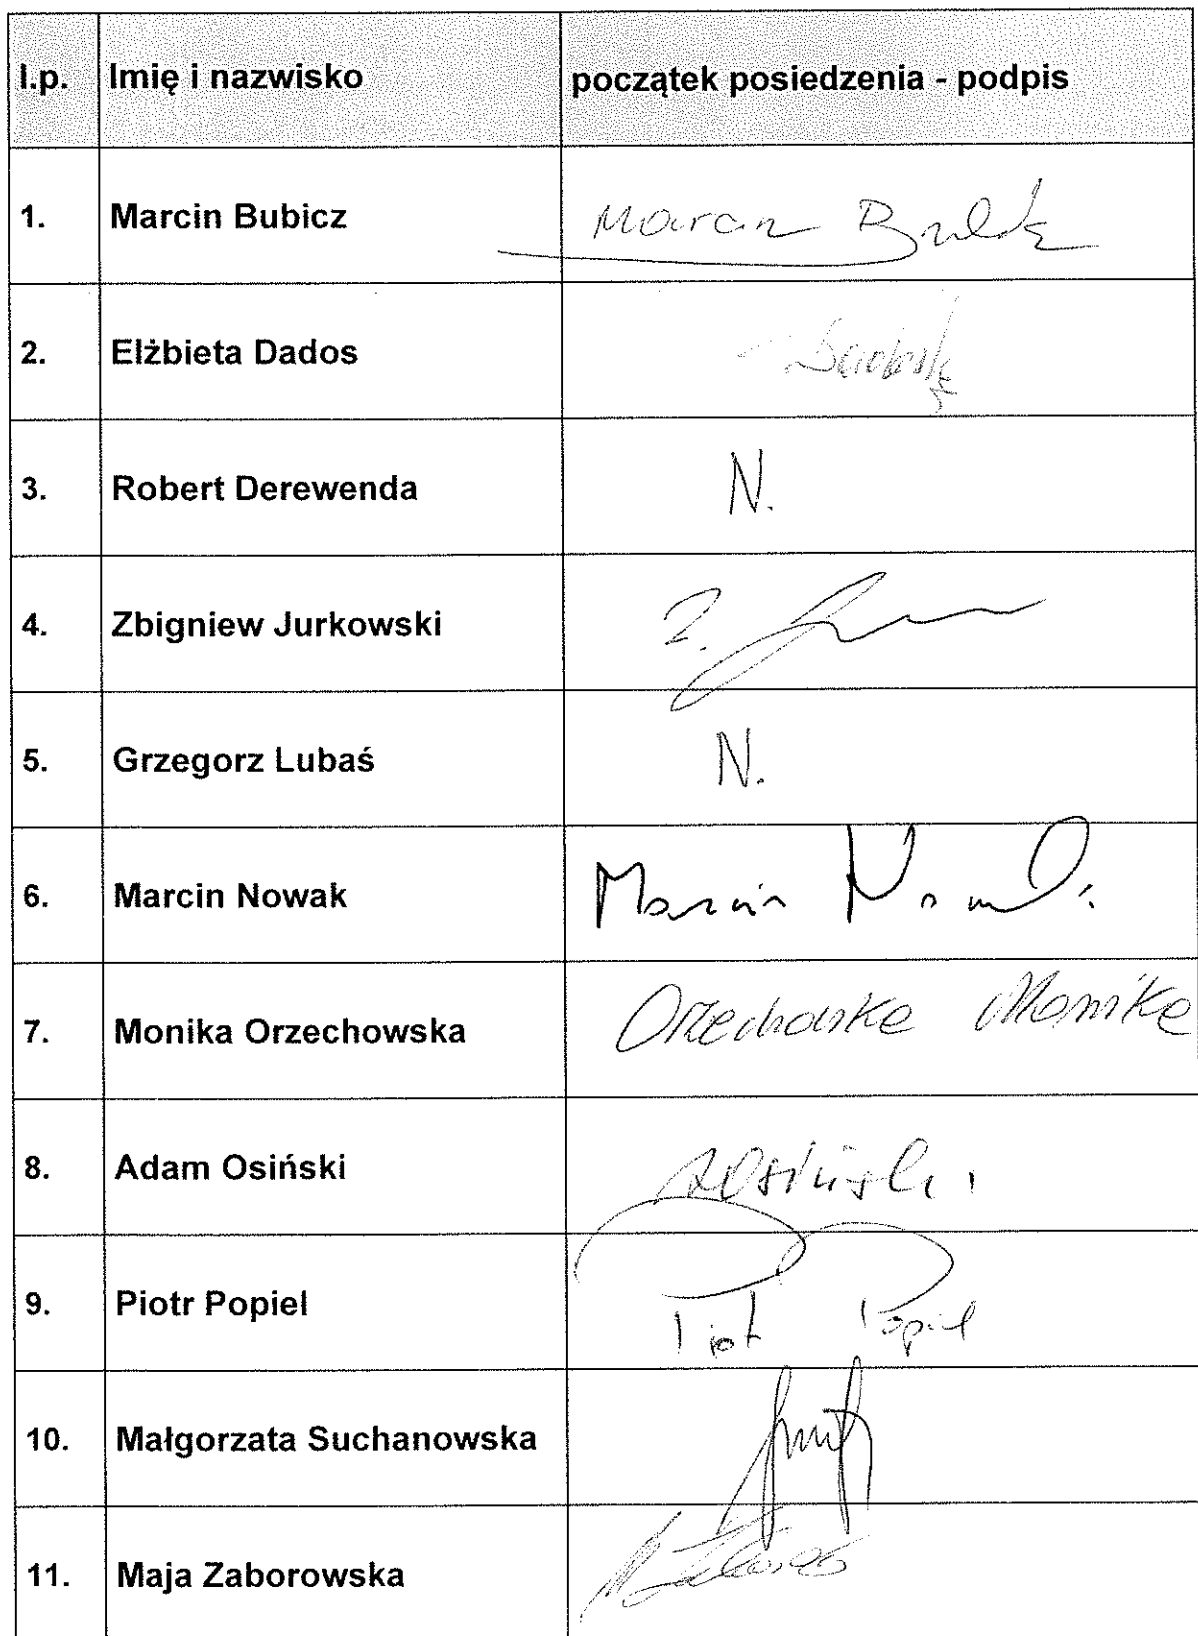 l.p. Imię i nazwisko początek posiedzenia - podpis
1. Marcin Bubicz Marcin
2. Elżbieta Dados
3. Robert Derewenda N.
4. Zbigniew Jurkowski
5. Grzegorz Lubaś N.
6. Marcin Nowak Marcin
7. Monika Orzechowska Orzechowska Monika
8. Adam Osiński AOsiński
9. Piotr Popiel Piotr Popiel
10. Małgorzata Suchanowska
11. Maja Zaborowska